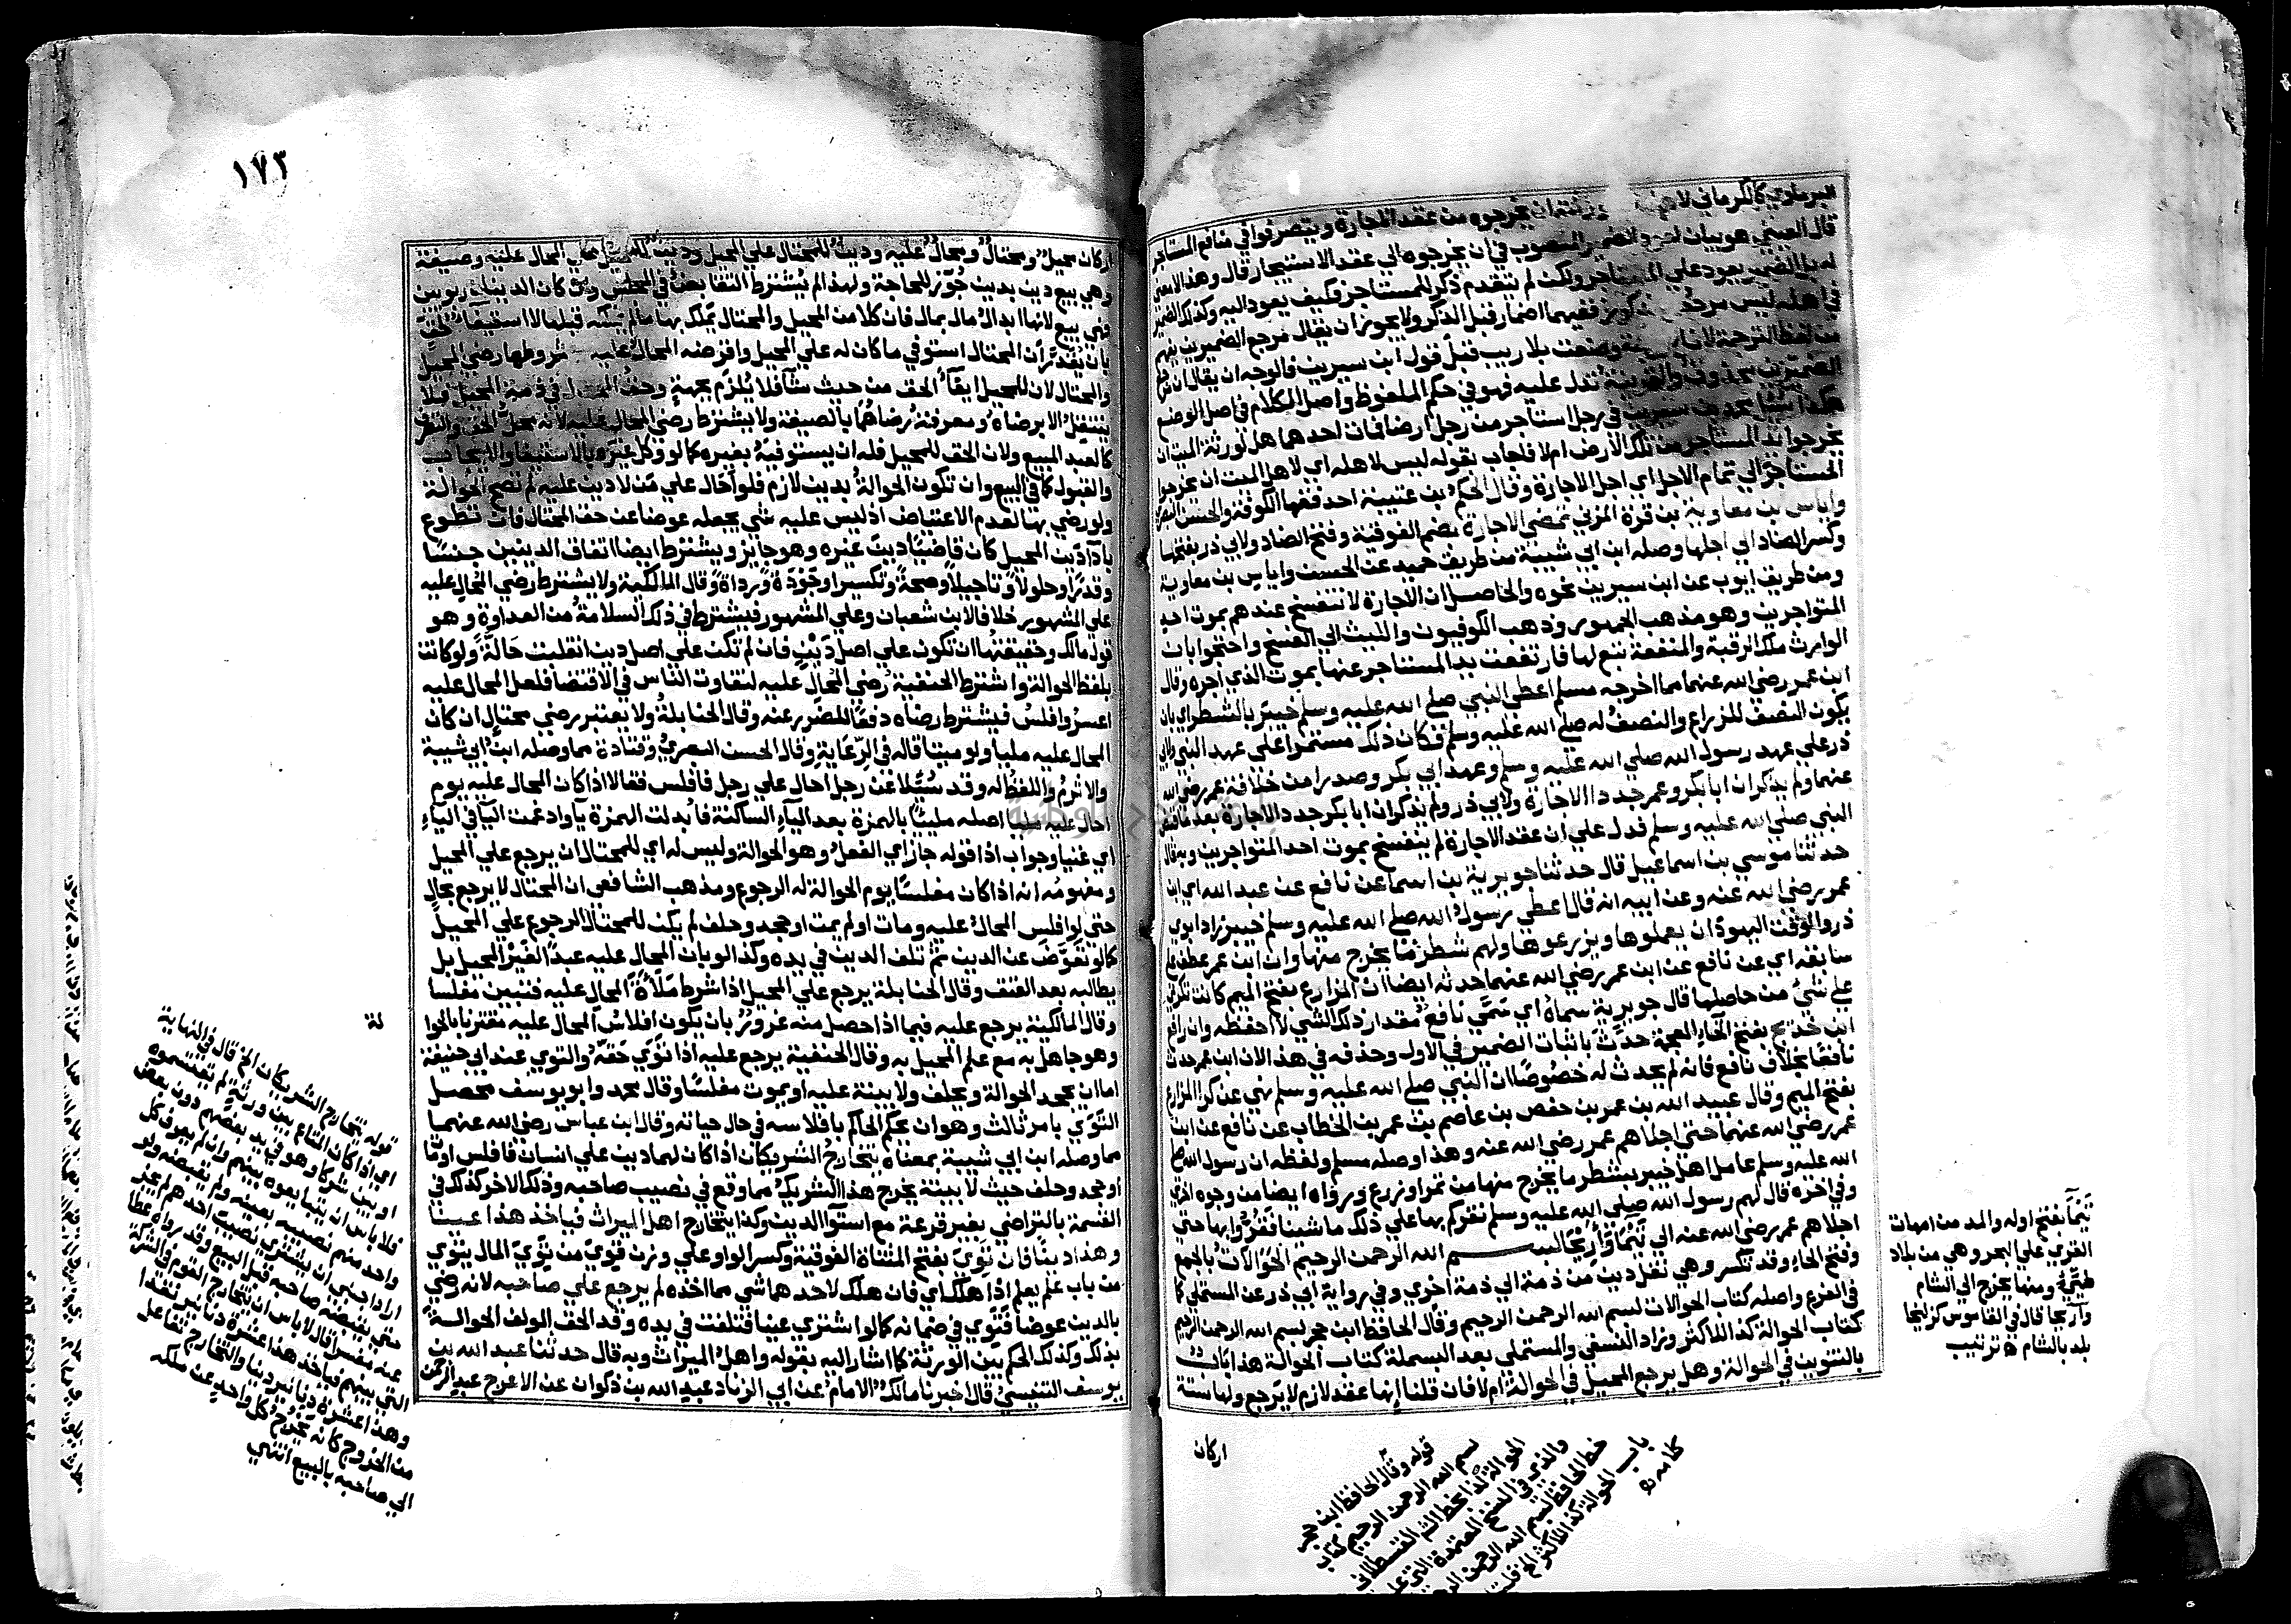 البرماوي كالكرماني لاهله ان يخرجوه من عقد الاجارة ويتصرفوا في منافع المستاجر
قال العيني هو بيان الضمير المنصوب في ان يخرجوه الي عقد الاستيجار قال وهذا لا معني
له بل الضمير يعود علي المستاجر ولكن لم يتقدم ذكر للمستاجر فكيف يعود اليه وكذلك الضمير
في اهله ليس مرجعه مذكورا ففيهما اضمار قبل الذكر ولا يجوز ان يقال مرجع الضميرين يفهم
من لفظ الترجمة لان الترجمة وضعت بلا ريب قبل قول ابن سيرين فالوجه ان يقال ان مرجع
الضميرين محذوف والقرينة تدل عليه فهو في حكم الملفوظ واصل الكلام في اصل الوضع
هكذا سئل محمد بن سيرين في رجل استاجر من رجل ارضا فمات احدهما هل لورثة الميت ان
يخرجوا يد المستاجر من تلك الارض ام لا فاجاب بقوله ليس لاهله اي لاهل الميت ان يخرجوا
المستاجر الي تمام الاجل اي اجل الاجارة وقال الحكم بن عتيبة احد فقها الكوفة والحسن البصري
واياس بن معاوية بن قرة المزني تمضي الاجارة بضم الفوقية وفتح الضاد ولابي ذر بفتحها
وكسر الضاد الي اجلها وصله ابن ابي شيبة من طريق حميد عن الحسن واياس بن معاوية
ومن طريق ايوب عن ابن سيرين نحوه والحاصل ان الاجارة لا تنفسخ عندهم بموت احد
المتواجرين وهو مذهب الجمهور وذهب الكوفيون والليث الي الفسخ واحتجوا بان
الوارث ملك الرقبة والمنفعة تبع لها فارتفعت يد المستاجر عنها بموت الذي اجره وقال
ابن عمر رضي الله عنهما مما اخرجه مسلم اعطي النبي صلي الله عليه وسلم خيبر بالشطر اي بان
يكون النصف للزراع والنصف له صلي الله عليه وسلم فكان ذلك مستمرا علي عهد النبي ولابي
ذر علي عهد رسول الله صلي الله عليه وسلم وعهد ابي بكر وصدرا من خلافة عمر رضي الله
عنهما ولم يذكر ان ابا بكر وعمر جددا الاجارة ولابي ذر ولم يذكر ان ابا بكر جدد الاجارة بعد ما قبض
النبي صلي الله عليه وسلم فدل علي ان عقد الاجارة لم ينفسخ بموت احد المتواجرين وبه قال
حدثنا موسي بن اسماعيل قال حدثنا جويرية بن اسما عن نافع عن عبد الله اي ابن
عمر رضي الله عنه وعن ابيه انه قال اعطي رسول الله صلي الله عليه وسلم خيبر زاد ابوي
ذر والوقت اليهود ان يعملوها ويزرعوها ولهم شطر ما يخرج منها وان ابن عمر عطف علي
سابقه اي عن نافع عن ابن عمر رضي الله عنهما حدثه ايضا ان المزارع بفتح الميم كانت تكري
علي شيء من حاصلها قال جويرية سماه اي سمي نافع مقدار ذلك الشي لا احفظه وان رافع
ابن خديج بفتح الخاء المعجمة حدث باثبات الضمير في الاول وحذفه في هذا لان ابن عمر حدث
نافعا بخلاف نافع فانه لم يحدث له خصوصا ان النبي صلي الله عليه وسلم نهي عن كرا المزارع
بفتح الميم وقال عبيد الله بن عمر بن حفص بن عاصم بن عمر بن الخطاب عن نافع عن ابن
عمر رضي الله عنهما حتي اجلاهم عمر رضي الله عنه وهذا وصله مسلم ولفظه ان رسول الله صلي
الله عليه وسلم عامل اهل خيبر بشطر ما يخرج منها من تمر او زرع ورواه ايضا من وجوه اخري
وفي اخره قال لهم رسول الله صلي الله عليه وسلم نقركم بها علي ذلك ما شينا فقروا بها حتي
اجلاهم عمر رضي الله عنه الي تيما واريحا بسم الله الرحمن الرحيم الحوالات بالجمع
وفتح الحاء وقد تكسر وهي نقل دين من ذمة الي ذمة اخري وفي رواية ابي ذر عن المستملي كما
في الفرع واصله كتاب الحوالات بسم الله الرحمن الرحيم وقال الحافظ ابن حجر بسم الله الرحمن الرحيم
كتاب الحوالة كذا للاكثر وزاد النسفي والمستملي بعد البسملة كتاب الحوالة هذا باب
بالتنوين في الحوالة وهل يرجع المحيل في الحوالة ام لا فان قلنا انها عقد لازم لا يرجع ولها ستة
اركان
تيما بفتح اوله والمد من امهات
القري علي البحر وهي من بلاد
طيء ومنها يخرج الي الشام
واريحا قال في القاموس كزليخا
بلد بالشام ه ترتيب
قوله وقال الحافظ ابن حجر
بسم الله الرحمن الرحيم كتاب
الحوالة كذا بخط الشم القسطلاني
والذي في النسخ المعتمدة التي عليها
خط الحافظ بسم الله الرحمن الرحيم
باب الحوالة كذا للاكثر الخ
١٧٣
اركان محيل ومحتال ومحال عليه ودين للمحتال علي المحيل ودين للمحيل علي المحال عليه وصيغة
وهي بيع دين بدين جوز للحاجة ولهذا لم يشترط التقابض في المجلس وان كان الدينان ربويين
فهي بيع لانها ابدال مال بمال فان كلا من المحيل والمحتال يملك بها ما لم يملكه قبلها لا استيفاء لحق
بان يقدر ان المحتال استوفي ما كان له علي المحيل واقرضه المحال عليه وشروطها رضي المحيل
والمحتال لان للمحيل ايفاء الحق من حيث شا فلا يلزم بجهة وحق المحتال في ذمة المحيل فلا
ينتقل الا برضاه ومعرفة رضاهما بالصيغة ولا يشترط رضي المحال عليه لانه محل الحق والتصرف
كالعبد المبيع ولان الحق للمحيل فله ان يستوفيه بغيره كما لو وكل غيره بالاستيفا والايجاب
والقبول كما في البيع وان تكون الحوالة بدين لازم فلو احال علي من لا دين عليه لم تصح الحوالة
ولو رضي بها لعدم الاعتياض اذ ليس عليه شي يجعله عوضا عن حق المحتال فان تطوع
بآداء دين المحيل كان قاضيا دين غيره وهو جايز ويشترط ايضا اتفاق الدينين جنسا
وقدرا وحلولا وتاجيلا وصحة وتكسيرا وجودة ورداة وقال المالكية ولا يشترط رضي المحال عليه
علي المشهور خلافا لابن شعبان وعلي المشهور فيشترط في ذلك السلامة من العداوة وهو
قول مالك وحقيقتها ان تكون علي اصل دين فان لم تكن علي اصل دين انقلبت حمالة ولو كانت
بلفظ الحوالة واشترط الحنفية رضي المحال عليه لتفاوت الناس في الاقتضا فلعل المحال عليه
اعسر وافلس فيشترط رضاه دفعا للضرر عنه وقال الحنابلة ولا يعتبر رضي محتال ان كان
المحال عليه مليا ولو ميتا قاله في الرعاية وقال الحسن البصري وقتادة مما وصله ابن ابي شيبة
والاثرم واللفظ له وقد سئلا عن رجل احال علي رجل فافلس فقالا اذا كان المحال عليه يوم
احال عليه مليا اصله مليئا بالهمزة بعد الياء الساكنة فابدلت الهمزة ياء وادغمت الياء في الياء
اي غنيا وجواب اذا قوله جاز اي الفعل وهو الحوالة وليس له اي للمحتال ان يرجع علي المحيل
ومفهومه انه اذا كان مفلسا يوم الحوالة له الرجوع ومذهب الشافعي ان المحتال لا يرجع بحال
حتي لو افلس المحال عليه ومات او لم يمت او جحد وحلف لم يكن للمحتال الرجوع علي المحيل
كما لو تعوض عن الدين ثم تلف الدين في يده وكذا لو بان المحال عليه عبدا لغير المحيل بل
يطالبه بعد العتق وقال الحنابلة يرجع علي المحيل اذا شرط ملاءة المحال عليه فتبين مفلسا
وقال المالكية يرجع عليه فيما اذا حصل منه غرور بان يكون افلاس المحال عليه مقترنا بالحوا
لة
وهو جاهل به مع علم المحيل به وقال الحنفية يرجع عليه اذا توي حقه والتوي عند ابي حنيفة
اما ان يجحد الحوالة ويحلف ولا بينة عليه او يموت مفلسا وقال محمد وابو يوسف محصل
التوي بامر ثالث وهو ان يحكم الحاكم بافلاسه في حال حياته وقال ابن عباس رضي الله عنهما
مما وصله ابن ابي شيبة بمعناه يتخارج الشريكان اذا كان لهما دين علي انسان فافلس او مات
او جحد وحلف حيث لا بينة يخرج هذا الشريك مما وقع في نصيب صاحبه وذلك الاخر كذلك في
القسمة بالتراضي بغير قرعة مع استواء الدين وكذا يتخارج اهل الميراث فياخذ هذا عينا
وهذا دينا فان توي بفتح المثناة الفوقية وكسر الواو علي وزن قوي من توي المال يتوي
من باب علم يعلم اذا هلك اي فان هلك لاحدهما شي مما اخذه لم يرجع علي صاحبه لانه رضي
بالدين عوضا فتوي في ضمانه كما لو اشتري عينا فتلفت في يده وقد الحق المولف الحوالة
بذلك وكذلك الحكم بين الورثة كما اشار اليه بقوله واهل الميراث وبه قال حدثنا عبد الله بن
يوسف التنيسي قال اخبرنا مالك الامام عن ابي الزناد عبد الله بن ذكوان عن الاعرج عبد الرحمن
قوله يتخارج الشريكان الخ قال في النهاية
اي اذا كان المتاع بين ورثة لم يقتسموه
او بين شركا وهو في يد بعضهم دون بعض
فلا باس ان يتبايعوه بينهم وان لم يعرف كل
واحد منهم نصيبه بعينه ولم يقبضه ولو
اراد اجنبي ان يشتري نصيب احدهم لم يجز
حتي يقبضه صاحبه قبل البيع وقد رواه عطا
عنه مفسرا قال لا باس ان يتخارج القوم في الشركة
التي بينهم فياخذ هذا عشرة دنانير نقدا
وهذا عشرة دنانير دينا والتخارج تفاعل
من الخروج كانه يخرج كل واحد عن ملكه
الي صاحبه بالبيع انتهي